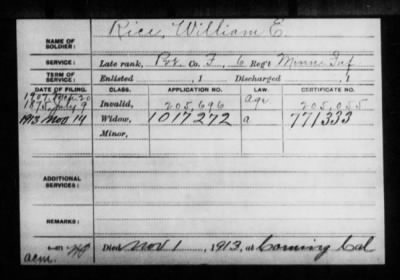 NAME OF SOLDIER: Rice, William E.
SERVICE: Late rank, Pvt. Co. F, 6 Reg't Minn. Inf
TERM OF SERVICE: Enlisted , 1 Discharged , 1
DATE OF FILING. CLASS. APPLICATION NO. LAW. CERTIFICATE NO.
1907 Age
1875 July Invalid, 205,696 205,055
1913 Nov 14 Widow, 1017272 a 771333
Minor,
ADDITIONAL SERVICES:
REMARKS:
Died Nov 1, 1913, at Corning Cal
acm.